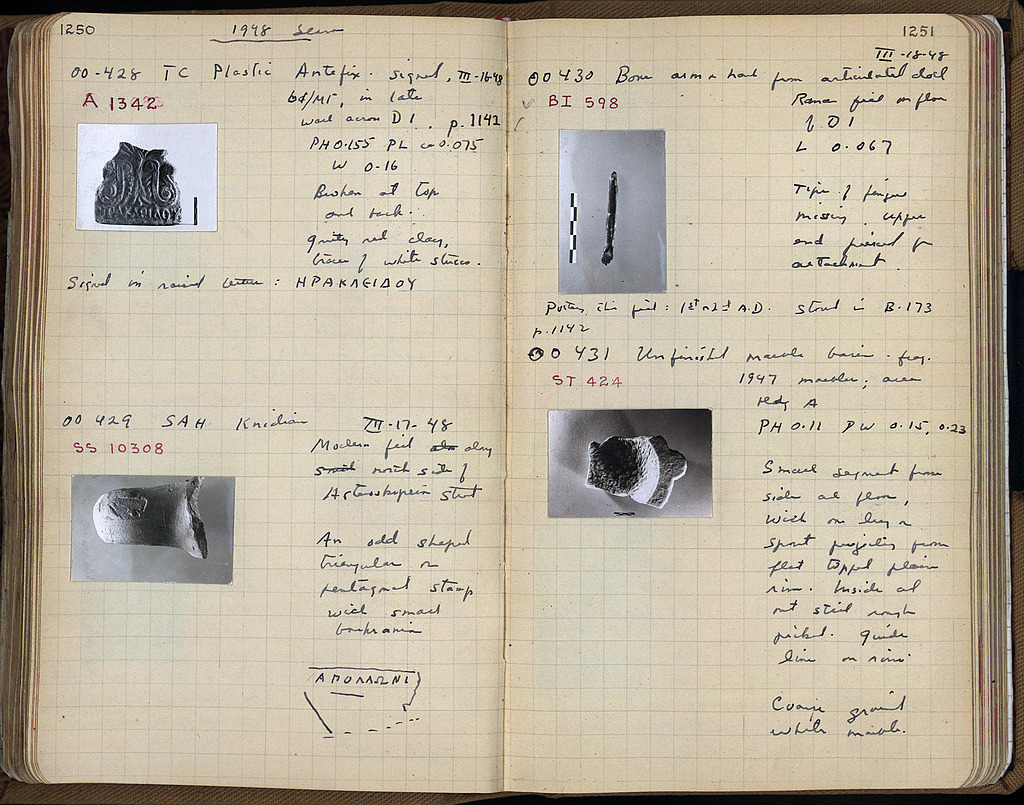 1250
1948
OO-428 TC Plastic Antefix. signed, III-16-48
A 1342
in late
wall across D1. p. 1142
PH 0.155 PL ca 0.075
W 0.16
Broken at top
and back.
gritty red clay,
traces of white stucco.
Signed in raised letters : ΗΡΑΚΛΕΙΔΟΥ
OO 429 SAH Knidian III-17-48
SS 10308
Modern fill along
north side of
Asteroskopeion street
An odd shaped
triangular or
pentagonal stamp
with small
boukrania
ΑΠΟΛΛΩΝΙ
1251
III-18-48
OO 430 Bone arm & hand from articulated doll
BI 598
Roman fill on floor
of D1
L 0.067
Tips of fingers
missing upper
end pierced for
attachment.
Pottery this fill: 1st-2nd A.D. stored in B.173
p. 1142
OO 431 Unfinished marble basin frag.
ST 424
1947 marbles; area
Bldg A
PH 0.11 PW 0.15, 0.23
Small segment from
side and floor,
with one lug or
spout projecting from
flat topped plain
rim. Inside and
out still rough
picked. Guide
line on rim.
Coarse grained
white marble.